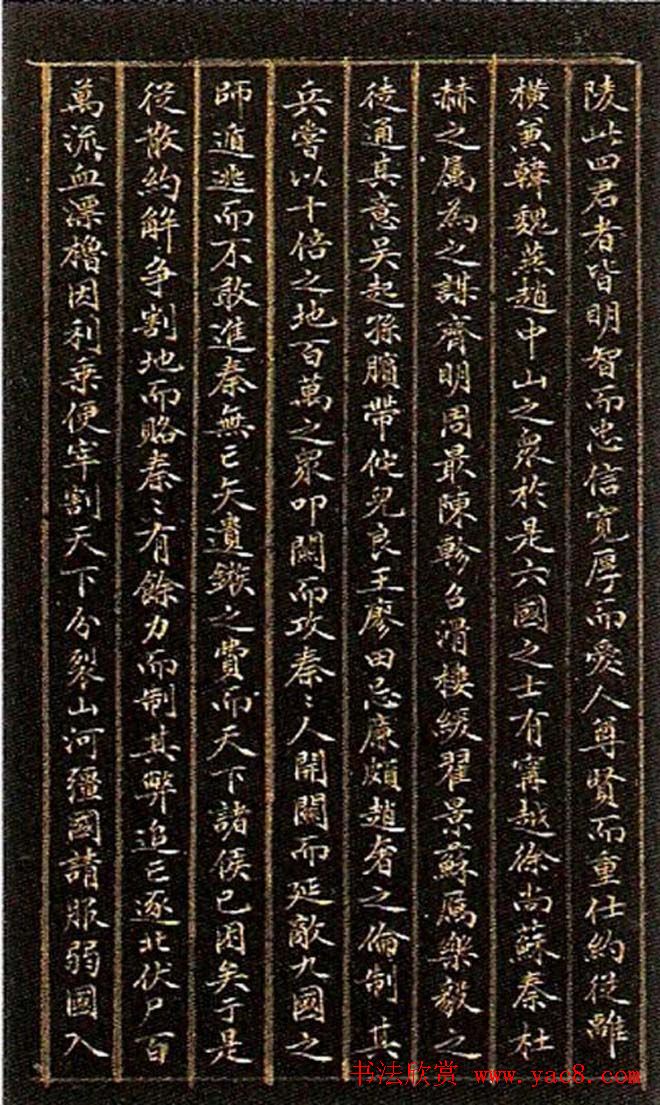 陵此四君者皆明智而忠信寛厚而愛人尊賢而重仕約從離
横兼韓魏燕趙中山之衆於是六國之士有寗越徐尚蘇秦杜
赫之属為之謀齊明周最陳軫召滑樓緩翟景蘇厲樂毅之
徒通其意吴起孫臏帶佗兒良王廖田忌廉頗趙奢之倫制其
兵嘗以十倍之地百萬之衆叩關而攻秦〻人開關而延敵九國之
師遁逃而不敢進秦無亡矢遺鏃之費而天下諸侯已困矣于是
從散約解争割地而賂秦〻有餘力而制其弊追亡逐北伏尸百
萬流血漂櫓因利乗便宰割天下分裂山河彊國請服弱國入
书法欣赏 www.yac8.com